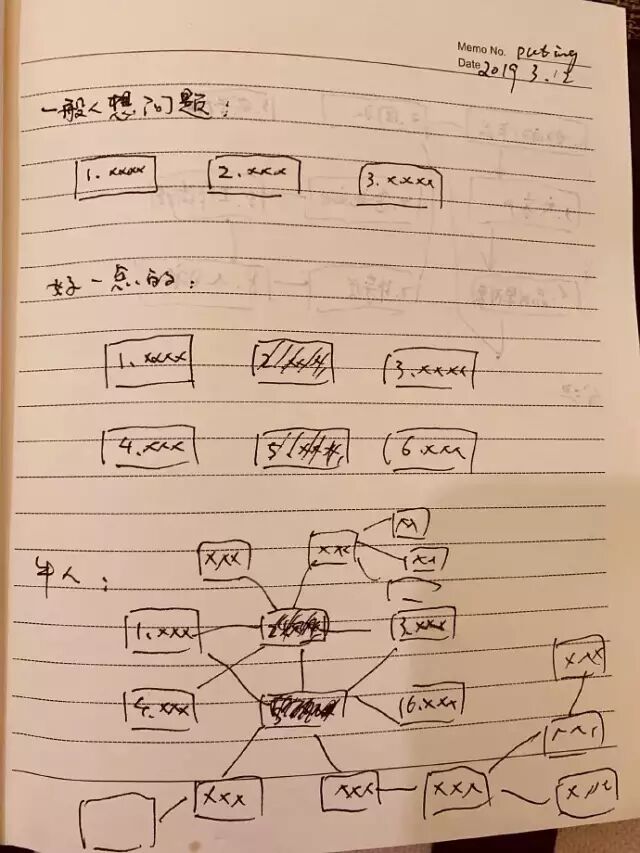 Memo No. puting
Date 2019 3.12
一般人想问题：
1.xxxx 2.xxx 3.xxxx
好一点的：
1.xxxx 2.xxx 3.xxxx
4.xxx 5.xxx 6.xxx
牛人：
xxx xxx xx
xx
1.xxx 2.xxx 3.xxx
xxx
4.xxx 5. 6.xxx
xxx
xxx xxx xxx xxx